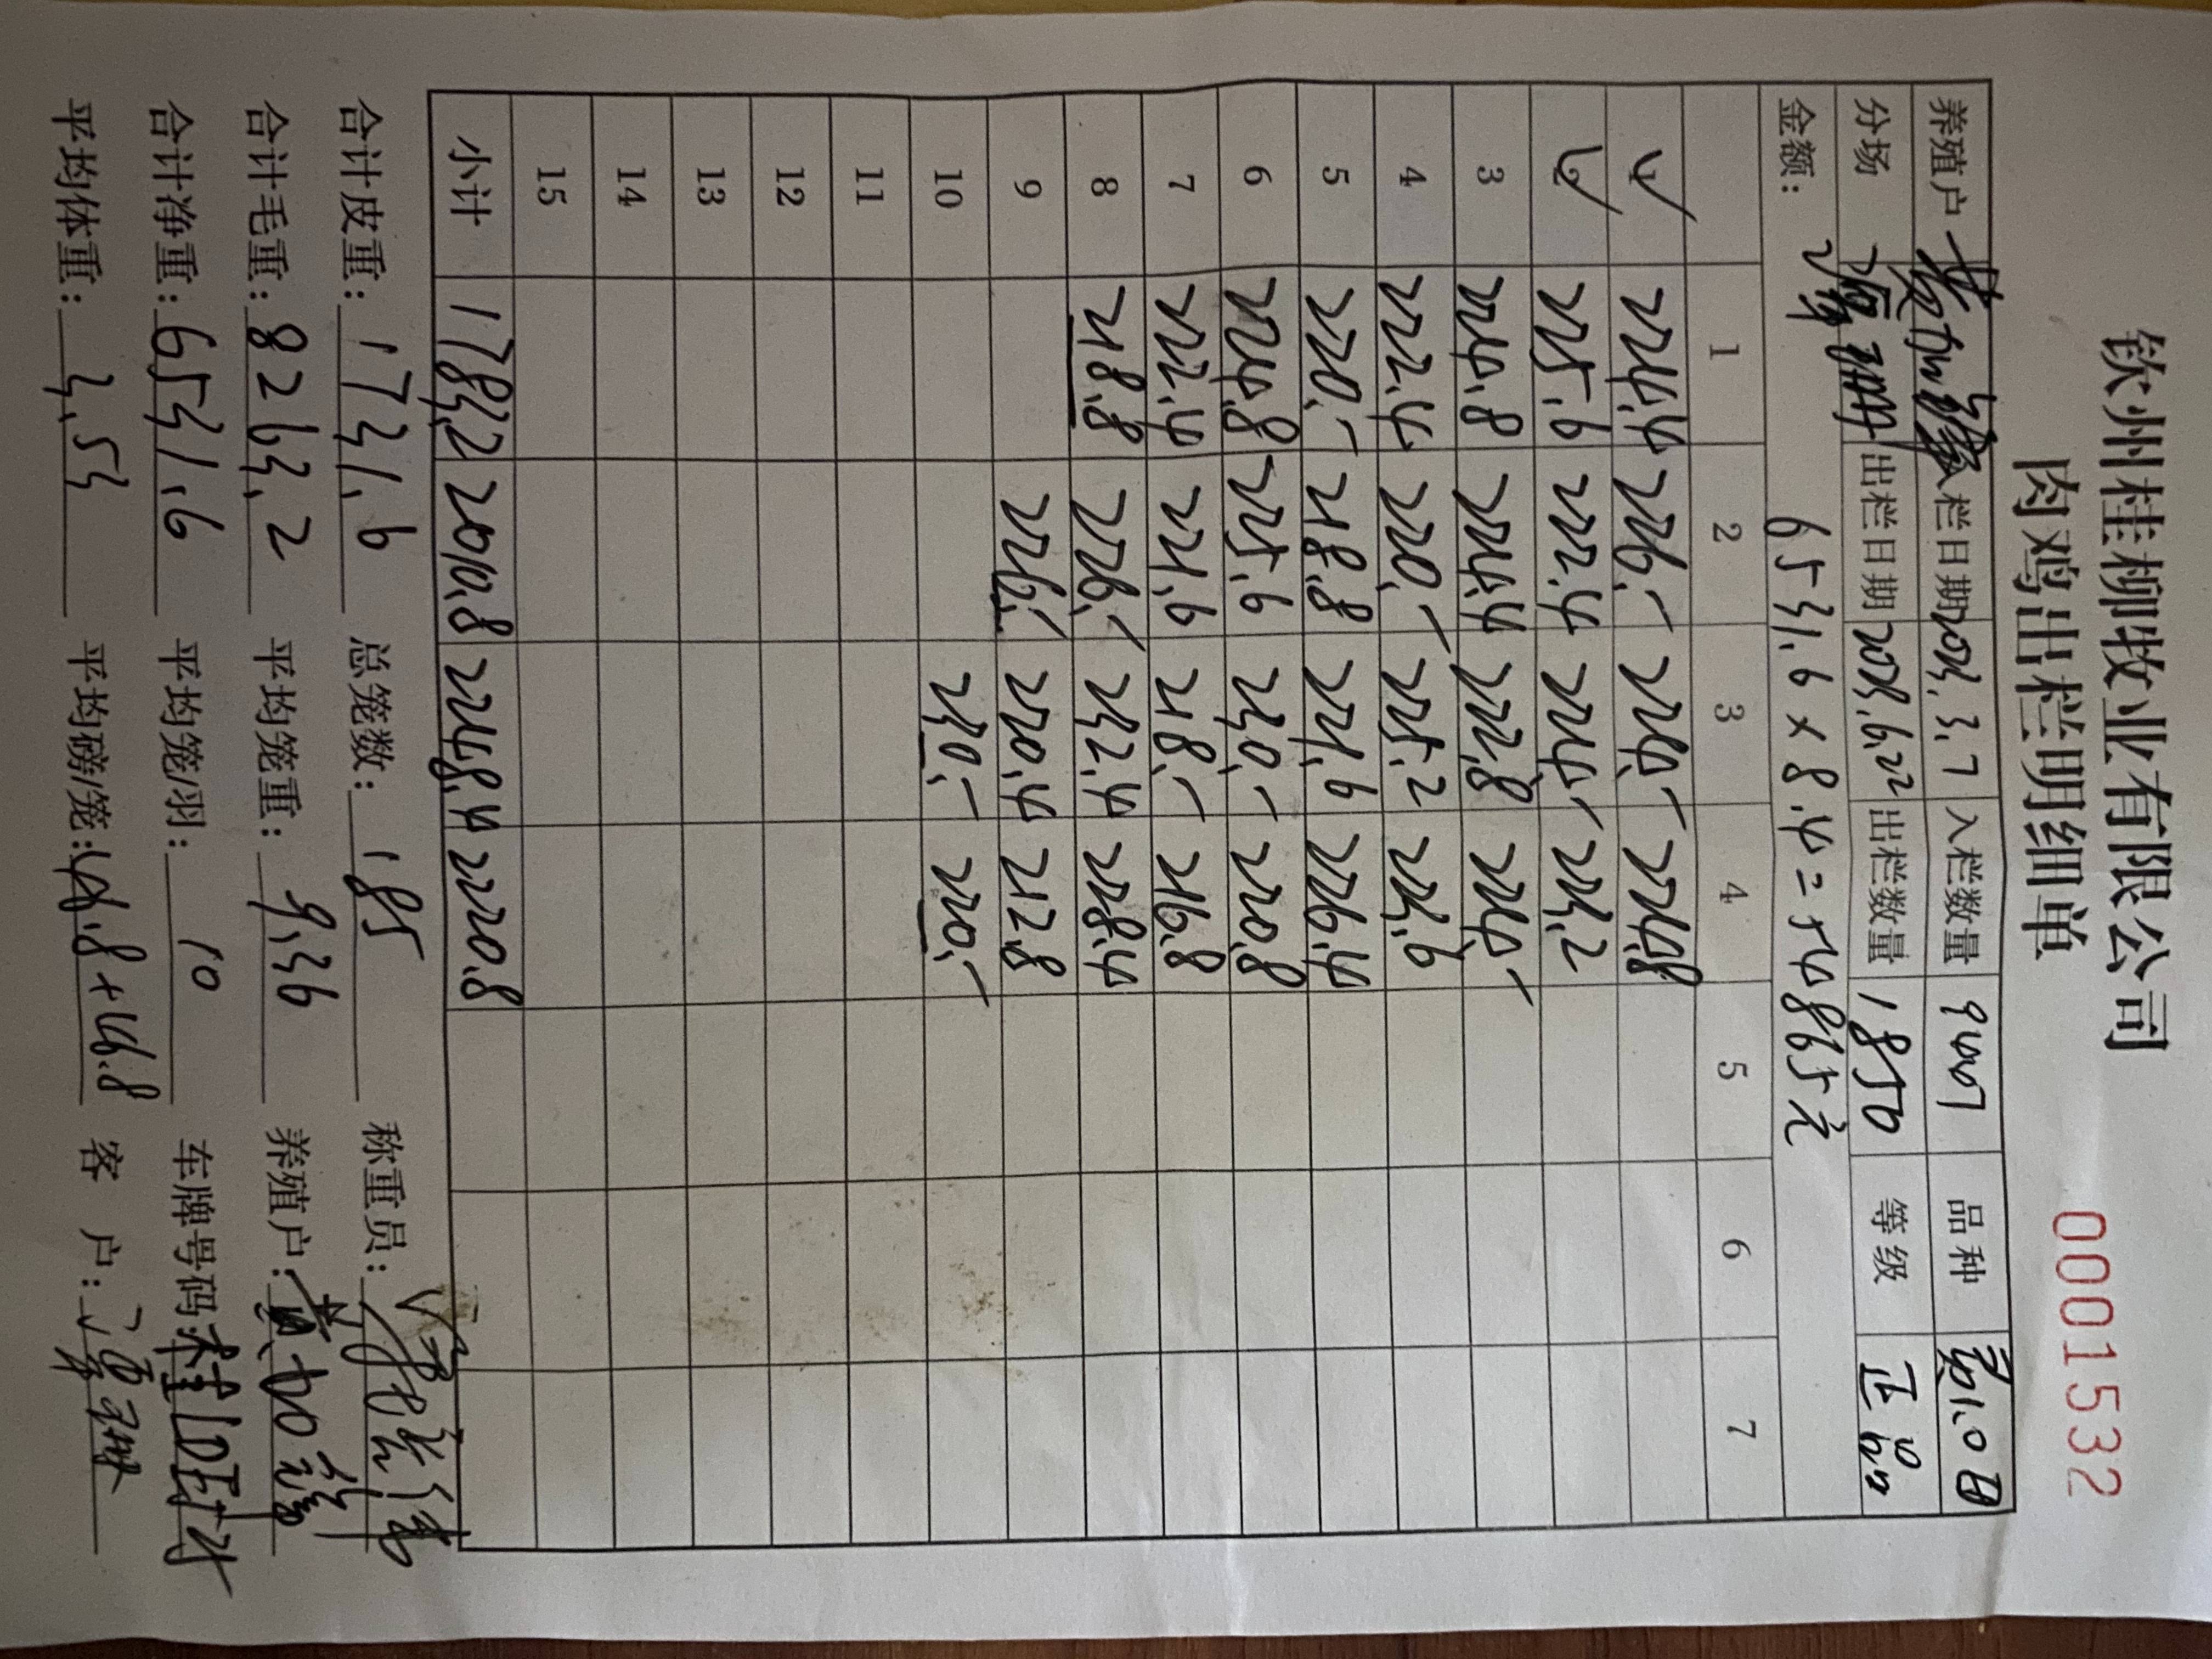 钦州桂柳牧业有限公司
肉鸡出栏明细单
0001532
养殖户 入栏日期 2023.3.7 入栏数量 品种
分场 出栏日期 2023.6.22 出栏数量 1850 等级 正品
金额: 6531.6×8.4=54865元
1 2 3 4 5 6 7
1 224.4 226.- 224.- 224.8
2 225.6 222.4 224.- 223.2
3 224.8 224.4 222.8 224.-
4 222.4 220.- 225.2 223.6
5 220.- 218.8 221.6 226.4
6 224.8 225.6 230.- 220.8
7 222.4 221.6 218.- 216.8
8 218.8 226.- 232.4 228.4
9 226.- 220.4 212.8
10 230.- 220.-
11
12
13
14
15
小计 1783.2 2010.8 2248.4 2220.8
合计皮重: 1731.6 总笼数: 185 称重员:
合计毛重: 8263.2 平均笼重: 9.36 养殖户:
合计净重: 6531.6 平均笼/羽: 10 车牌号码:
平均体重: 3.53 平均磅/笼: 客 户: